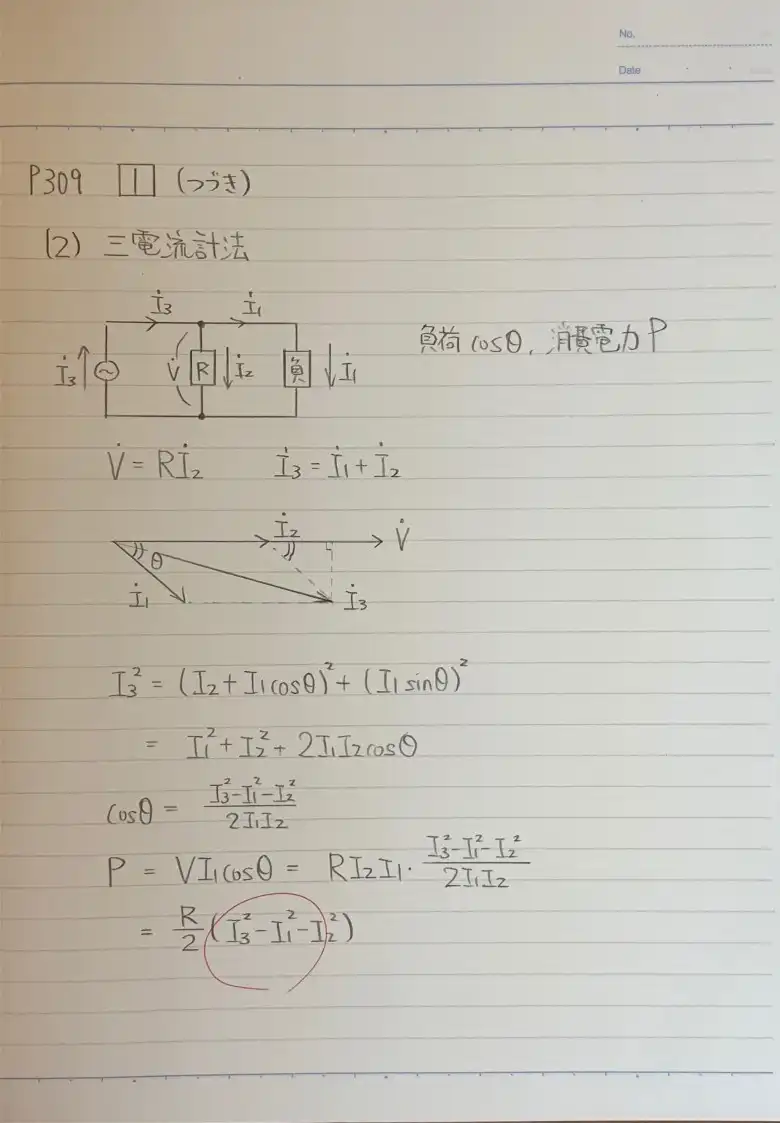 No.
Date
P309 1 (つづき)
(2) 三電流計法
İ₃ İ₁
İ₃ V̇ R İ₂ 負 İ₁
負荷 cosθ, 消費電力 P
V̇ = Rİ₂ İ₃ = İ₁ + İ₂
İ₂ V̇
θ
İ₁ İ₃
I₃² = (I₂ + I₁cosθ)² + (I₁ sinθ)²
= I₁² + I₂² + 2I₁I₂cosθ
cosθ = (I₃² - I₁² - I₂²) / 2I₁I₂
P = VI₁cosθ = RI₂I₁ · (I₃² - I₁² - I₂²) / 2I₁I₂
= R/2 (I₃² - I₁² - I₂²)